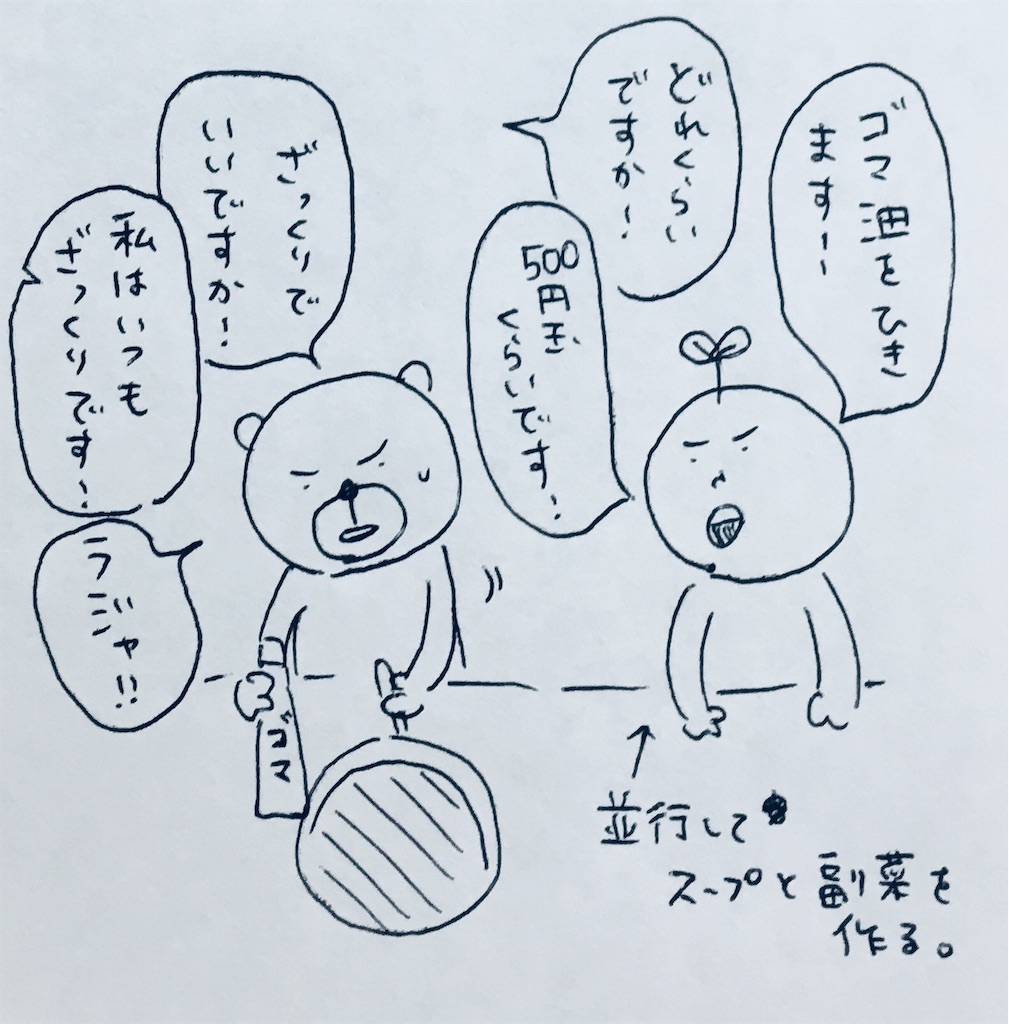 ゴマ油をひき
ます!
どれくらい
ですか!
500
円玉
くらいです!
ざっくりで
いいですか!
私はいつも
ざっくりです!
ラジャ!!
ゴマ
並行して
スープと副菜を
作る。